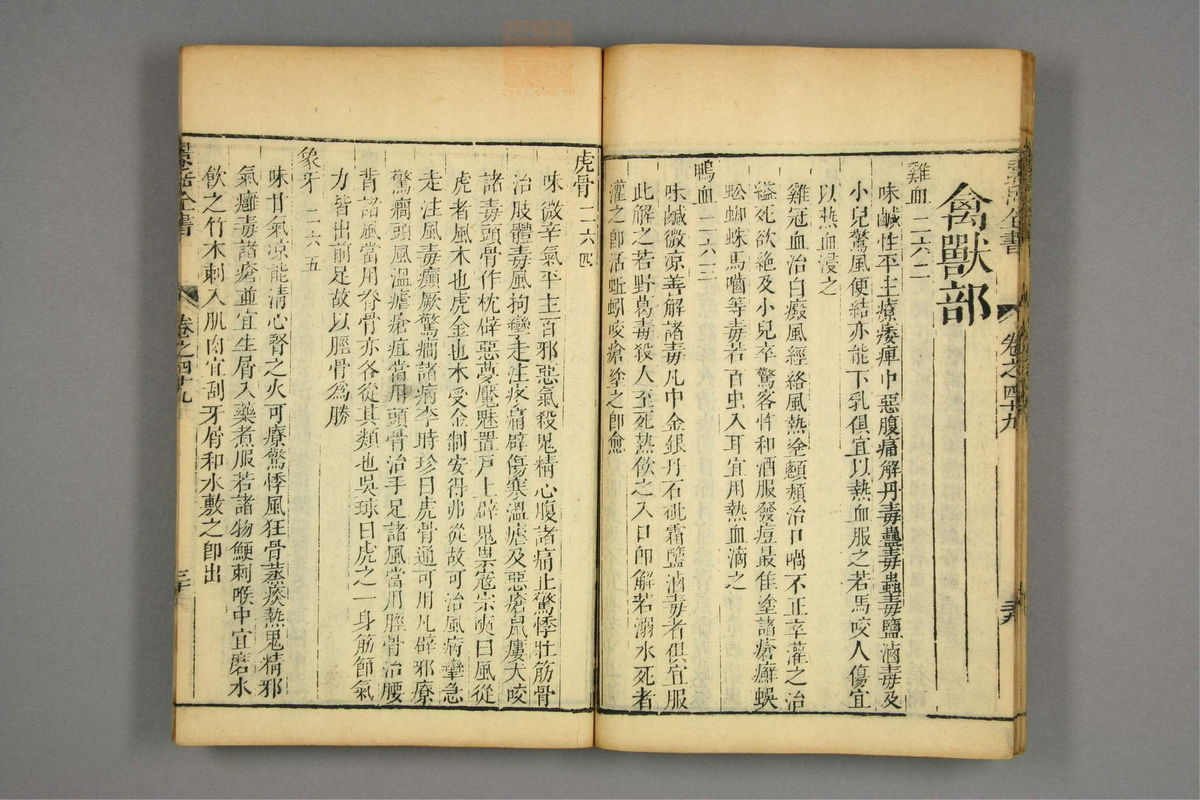 景岳全書 卷之四十九 三十九
禽獸部
雞血二六二
味鹹性平主療痿痺中惡腹痛解丹毒蠱毒蟲毒鹽滷毒及
小兒驚風便結亦能下乳俱宜以熱血服之若馬咬人傷宜
以熱血浸之
雞冠血治白癜風經絡風熱塗顱頰治口喎不正卒灌之治
縊死欲絶及小兒卒驚客忤和酒服發痘最佳塗諸瘡癬蜈
蚣蜘蛛馬嚙等毒若百虫入耳宜用熱血滴之
鴨血二六三
味鹹微凉善解諸毒凡中金銀丹石砒霜鹽滷毒者俱宜服
此解之若野葛毒殺人至死熱飲之入口即解若溺水死者
灌之即活蚯蚓咬瘡塗之即愈
虎骨二六四
味微辛氣平主百邪惡氣殺鬼精心腹諸痛止驚悸壯筋骨
治肢體毒風拘攣走注疼痛辟傷寒溫瘧及惡瘡鼠瘻犬咬
諸毒頭骨作枕辟惡夢魘魅置戸上辟鬼祟寇宗奭曰風從
虎者風木也虎金也木受金制安得弗從故可治風病攣急
走注風毒癲厥驚癇諸病李時珍曰虎骨通可用凡辟邪療
驚癇頭風溫瘧瘡疽當用頭骨治手足諸風當用脛骨治腰
背諸風當用脊骨亦各從其類也吳球曰虎之一身筋節氣
力皆出前足故以脛骨為勝
象牙二六五
味甘氣凉能清心腎之火可療驚悸風狂骨蒸痰熱鬼精邪
氣癰毒諸瘡並宜生屑入藥煮服若諸物鯁刺喉中宜磨水
飲之竹木刺入肌肉宜刮牙屑和水敷之即出
景岳全書 卷之四十九